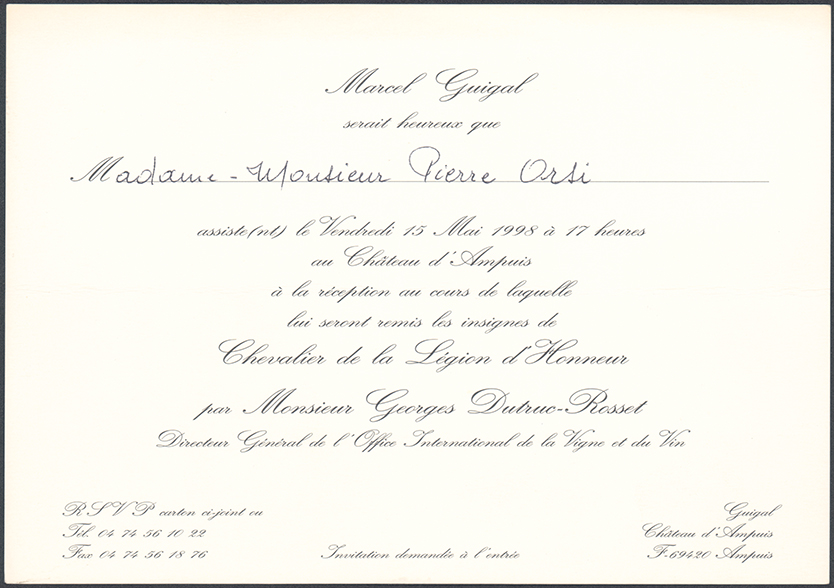 Marcel Guigal
serait heureux que
Madame - Monsieur Pierre Orsi
assiste(nt) le Vendredi 15 Mai 1998 à 17 heures
au Château d'Ampuis
à la réception au cours de laquelle
lui seront remis les insignes de
Chevalier de la Légion d'Honneur
par Monsieur Georges Dutruc-Rosset
Directeur Général de l'Office International de la Vigne et du Vin
R S V P carton ci-joint ou
Tél. 04 74 56 10 22
Fax 04 74 56 18 76
Invitation demandée à l'entrée
Guigal
Château d'Ampuis
F-69420 Ampuis